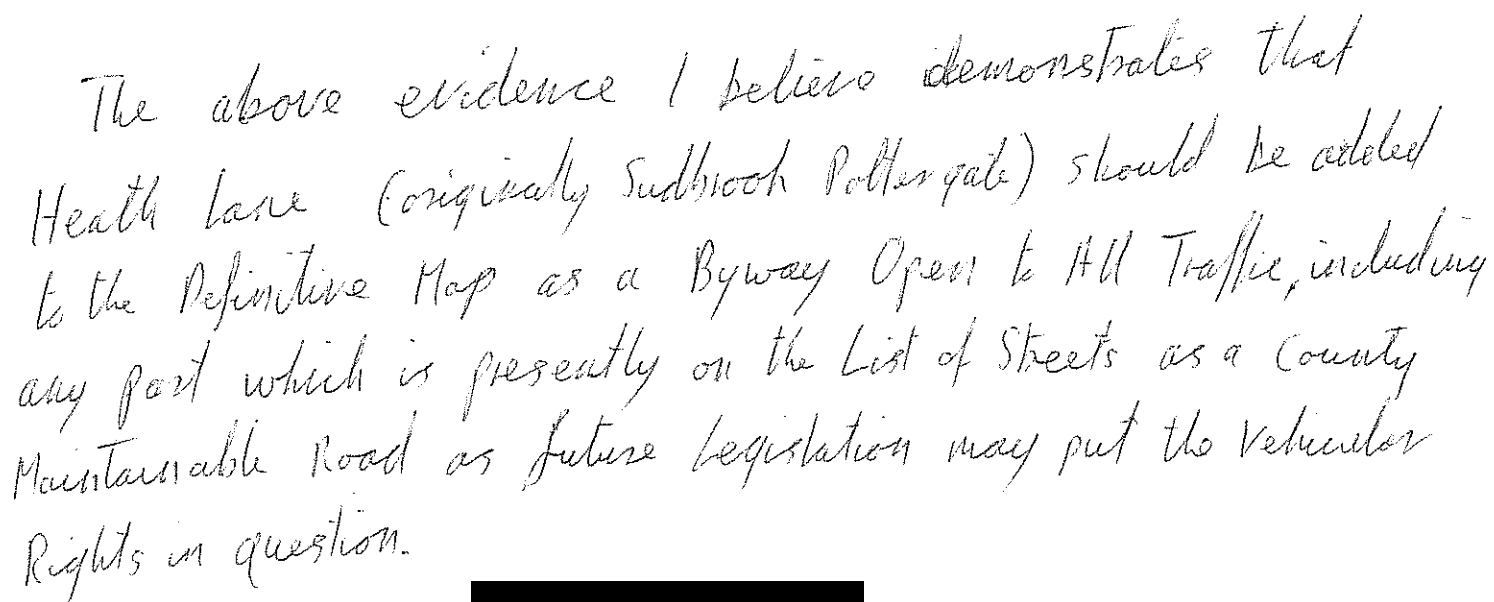 The above evidence I believe demonstrates that
Heath Lane (originally Sudbrook Pottergate) should be added
to the Definitive Map as a Byway Open to All Traffic, including
any part which is presently on the List of Streets as a County
Maintainable Road as future Legislation may put the Vehicular
Rights in question.